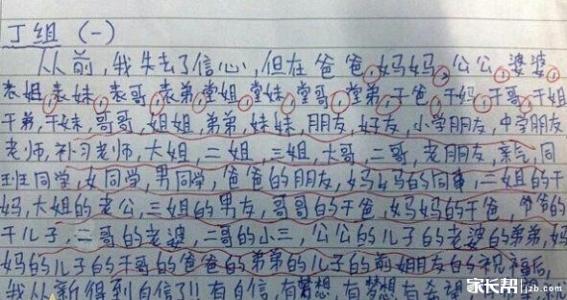 丁组 (一)
从前，我失去了信心，但在爸爸，妈妈，公公，婆婆，
表姐，表妹，表哥，表弟，堂姐，堂妹，堂哥，堂弟，干爸，干妈，干哥，干姐
干弟，干妹，哥哥，姐姐，弟弟，妹妹，朋友，好友，小学朋友，中学朋友
老师，补习老师，大姐，二姐，三姐，大哥，二哥，老朋友，亲气，同
班同学，女同学，男同学，爸爸的朋友，妈妈的同事，三姐的干
妈，大姐的老公，三姐的男友，哥哥的干爸，妈妈的干爸，爷爷的
干儿子，二哥的老婆，二哥的小三，公公的儿子的老婆的弟弟，妈
妈的儿子的干哥的爸爸的弟弟的儿子的前姐朋友的祝福后，
我从新得到自信了！有自信，有梦想
家长帮 jzb.com